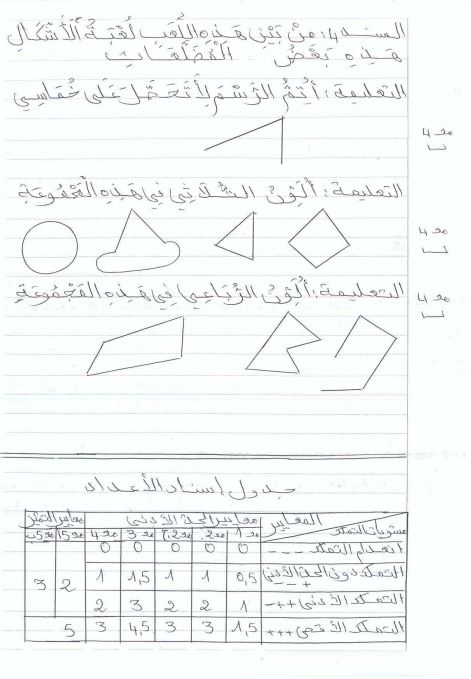 السند 4: مِنْ بَيْنِ هَذِهِ اللُّعَبِ لُعْبَةُ الْأَشْكَالِ
هَذِهِ بَعْضُ الْمُضَلَّعَاتِ
التعليمة: أُتِمُّ الرَّسْمَ لِأَتَحَصَّلَ عَلَى خُمَاسِيّ
مع 4
التعليمة: أُلَوِّنُ الثُّلَاثِيَّ فِي هَذِهِ الْمَجْمُوعَةِ
مع 4
التعليمة: أُلَوِّنُ الرُّبَاعِيَّ فِي هَذِهِ الْمَجْمُوعَةِ
مع 4
جدول إسناد الأعداد
المعايير معايير الحد الأدنى معايير التميز
مستويات التملك مع 1 مع 2 مع 3 مع 4 مع 5
انعدام التملك --- 0 0 0 0 0
التملك دون الحد الأدنى +-- 0,5 1 1 1,5 1 2 3
التملك الأدنى ++- 1 2 2 3 2
التملك الأقصى +++ 1,5 3 3 4,5 3 5